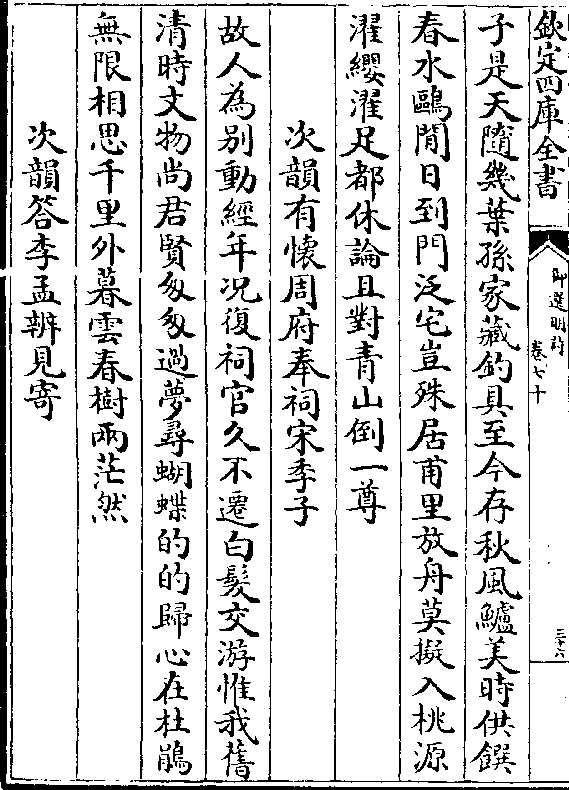 欽定四庫全書
御選明詩
卷七十
三十六
子是天隨幾葉孫家藏釣具至今存秋風鱸美時供饌
春水鷗閒日到門泛宅豈殊居甫里放舟莫擬入桃源
濯纓濯足都休論且對青山倒一尊
次韻有懷周府奉祠宋季子
故人為别動經年况復祠官久不遷白髮交游惟我舊
清時文物尚君賢匆匆過夢尋蝴蝶的的歸心在杜鵑
無限相思千里外暮雲春樹兩茫然
次韻答李孟辨見寄